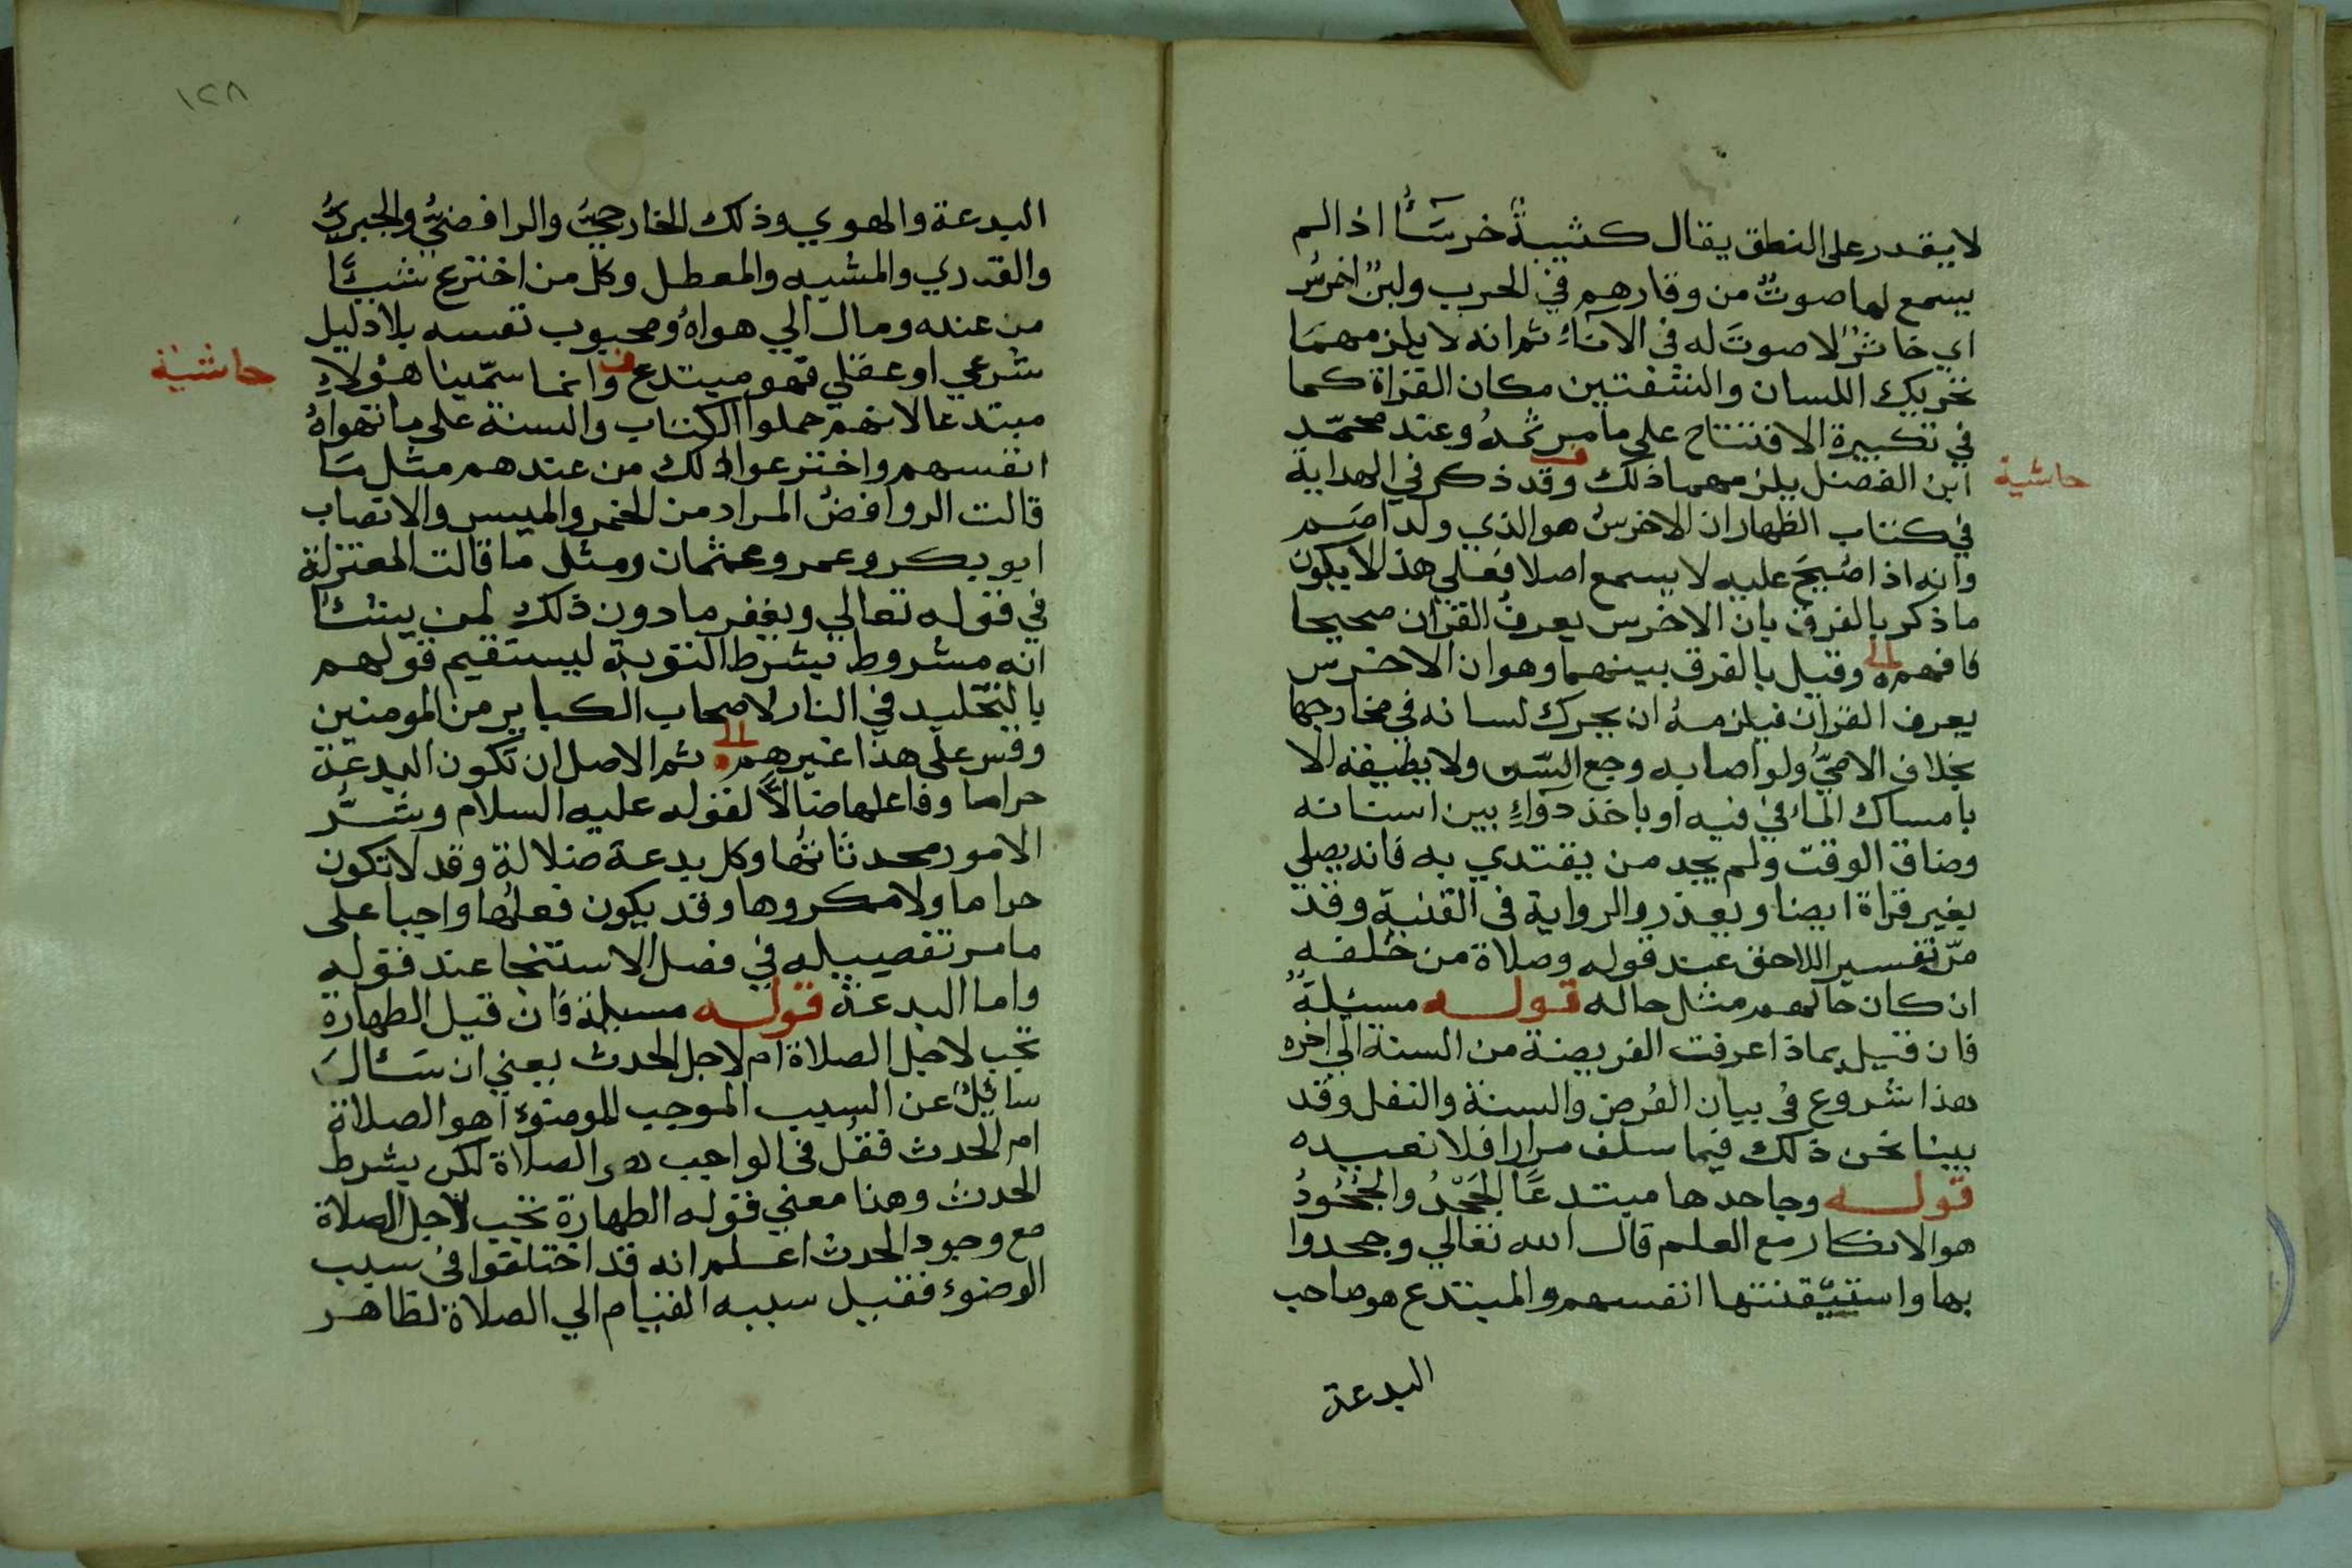 لا يقدر على النطق يقال كتيبة خرسآء اذا لم
يسمع لها صوت من وقارهم في الحرب ولبن اخرس
اي خاثر لا صوت له في الاناء ثم انه لا يلزمهما
تحريك اللسان والشفتين مكان القراة كما
في تكبيرة الافتتاح على ما مر ثمه وعند محمد
حاشية
ابن الفضل يلزمهما ذلك وقد ذكر في الهداية
في كتاب الظهار ان الاخرس هو الذي ولد اصم
وانه اذا صيح عليه لا يسمع اصلا فعلي هذا لا يكون
ما ذكر بالفرق بان الاخرس يعرف القران صحيحا
فافهم الى وقيل بالفرق بينهما وهو ان الاخرس
يعرف القران فيلزمه ان يحرك لسانه في مخارجها
بخلاف الامي ولو اصابه وجع السن ولا يطيقه الا
بامساك الماء في فيه او باخذ دوآء بين اسنانه
وضاق الوقت ولم يجد من يقتدي به فانه يصلي
بغير قراة ايضا ويعذر والرواية في القنية وقد
مر تفسير اللاحق عند قوله وصلاة من خلفه
ان كان حالهم مثل حاله قوله مسئلة
فان قيل بماذا عرفت الفريضة من السنة الي اخره
هذا شروع في بيان الفرض والسنة والنفل وقد
بينا نحن ذلك فيما سلف مرارا فلا نعيده
قوله وجاحدها مبتدعا الجحد والجحود
هو الانكار مع العلم قال الله تعالي وجحدوا
بها واستيقنتها انفسهم والمبتدع هو صاحب
البدعة
١٢٨
البدعة والهوي وذلك الخارجي والرافضي والجبري
والقدري والمشبه والمعطل وكل من اخترع شيئا
من عنده ومال الي هواه ومحبوب نفسه بلا دليل
شرعي او عقلي فهو مبتدع وانما سمينا هؤلاء
حاشية
مبتدعا لانهم حملوا الكتاب والسنة على ما تهواه
انفسهم واخترعوا ذلك من عندهم مثل ما
قالت الروافض المراد من الخمر والميسر والانصاب
ابو بكر وعمر وعثمان ومثل ما قالت المعتزلة
في قوله تعالي ويغفر ما دون ذلك لمن يشاء
انه مشروط بشرط التوبة ليستقيم قولهم
بالتخليد في النار لاصحاب الكباير من المومنين
وقس على هذا غيرهم الى ثم الاصل ان تكون البدعة
حراما وفاعلها ضالا لقوله عليه السلام وشر
الامور محدثاتها وكل بدعة ضلالة وقد لا تكون
حراما ولا مكروها وقد يكون فعلها واجبا على
ما مر تفصيله في فصل الاستنجا عند قوله
واما البدعة قوله مسئلة فان قيل الطهارة
تجب لاجل الصلاة ام لاجل الحدث يعني ان سئال
سائل عن السبب الموجب للوضوء اهو الصلاة
ام الحدث فقل في الواجب هو الصلاة لكن بشرط
الحدث وهذا معني قوله الطهارة تجب لاجل الصلاة
مع وجود الحدث اعلم انه قد اختلفوا في سبب
الوضوء فقيل سببه القيام الي الصلاة لظاهر